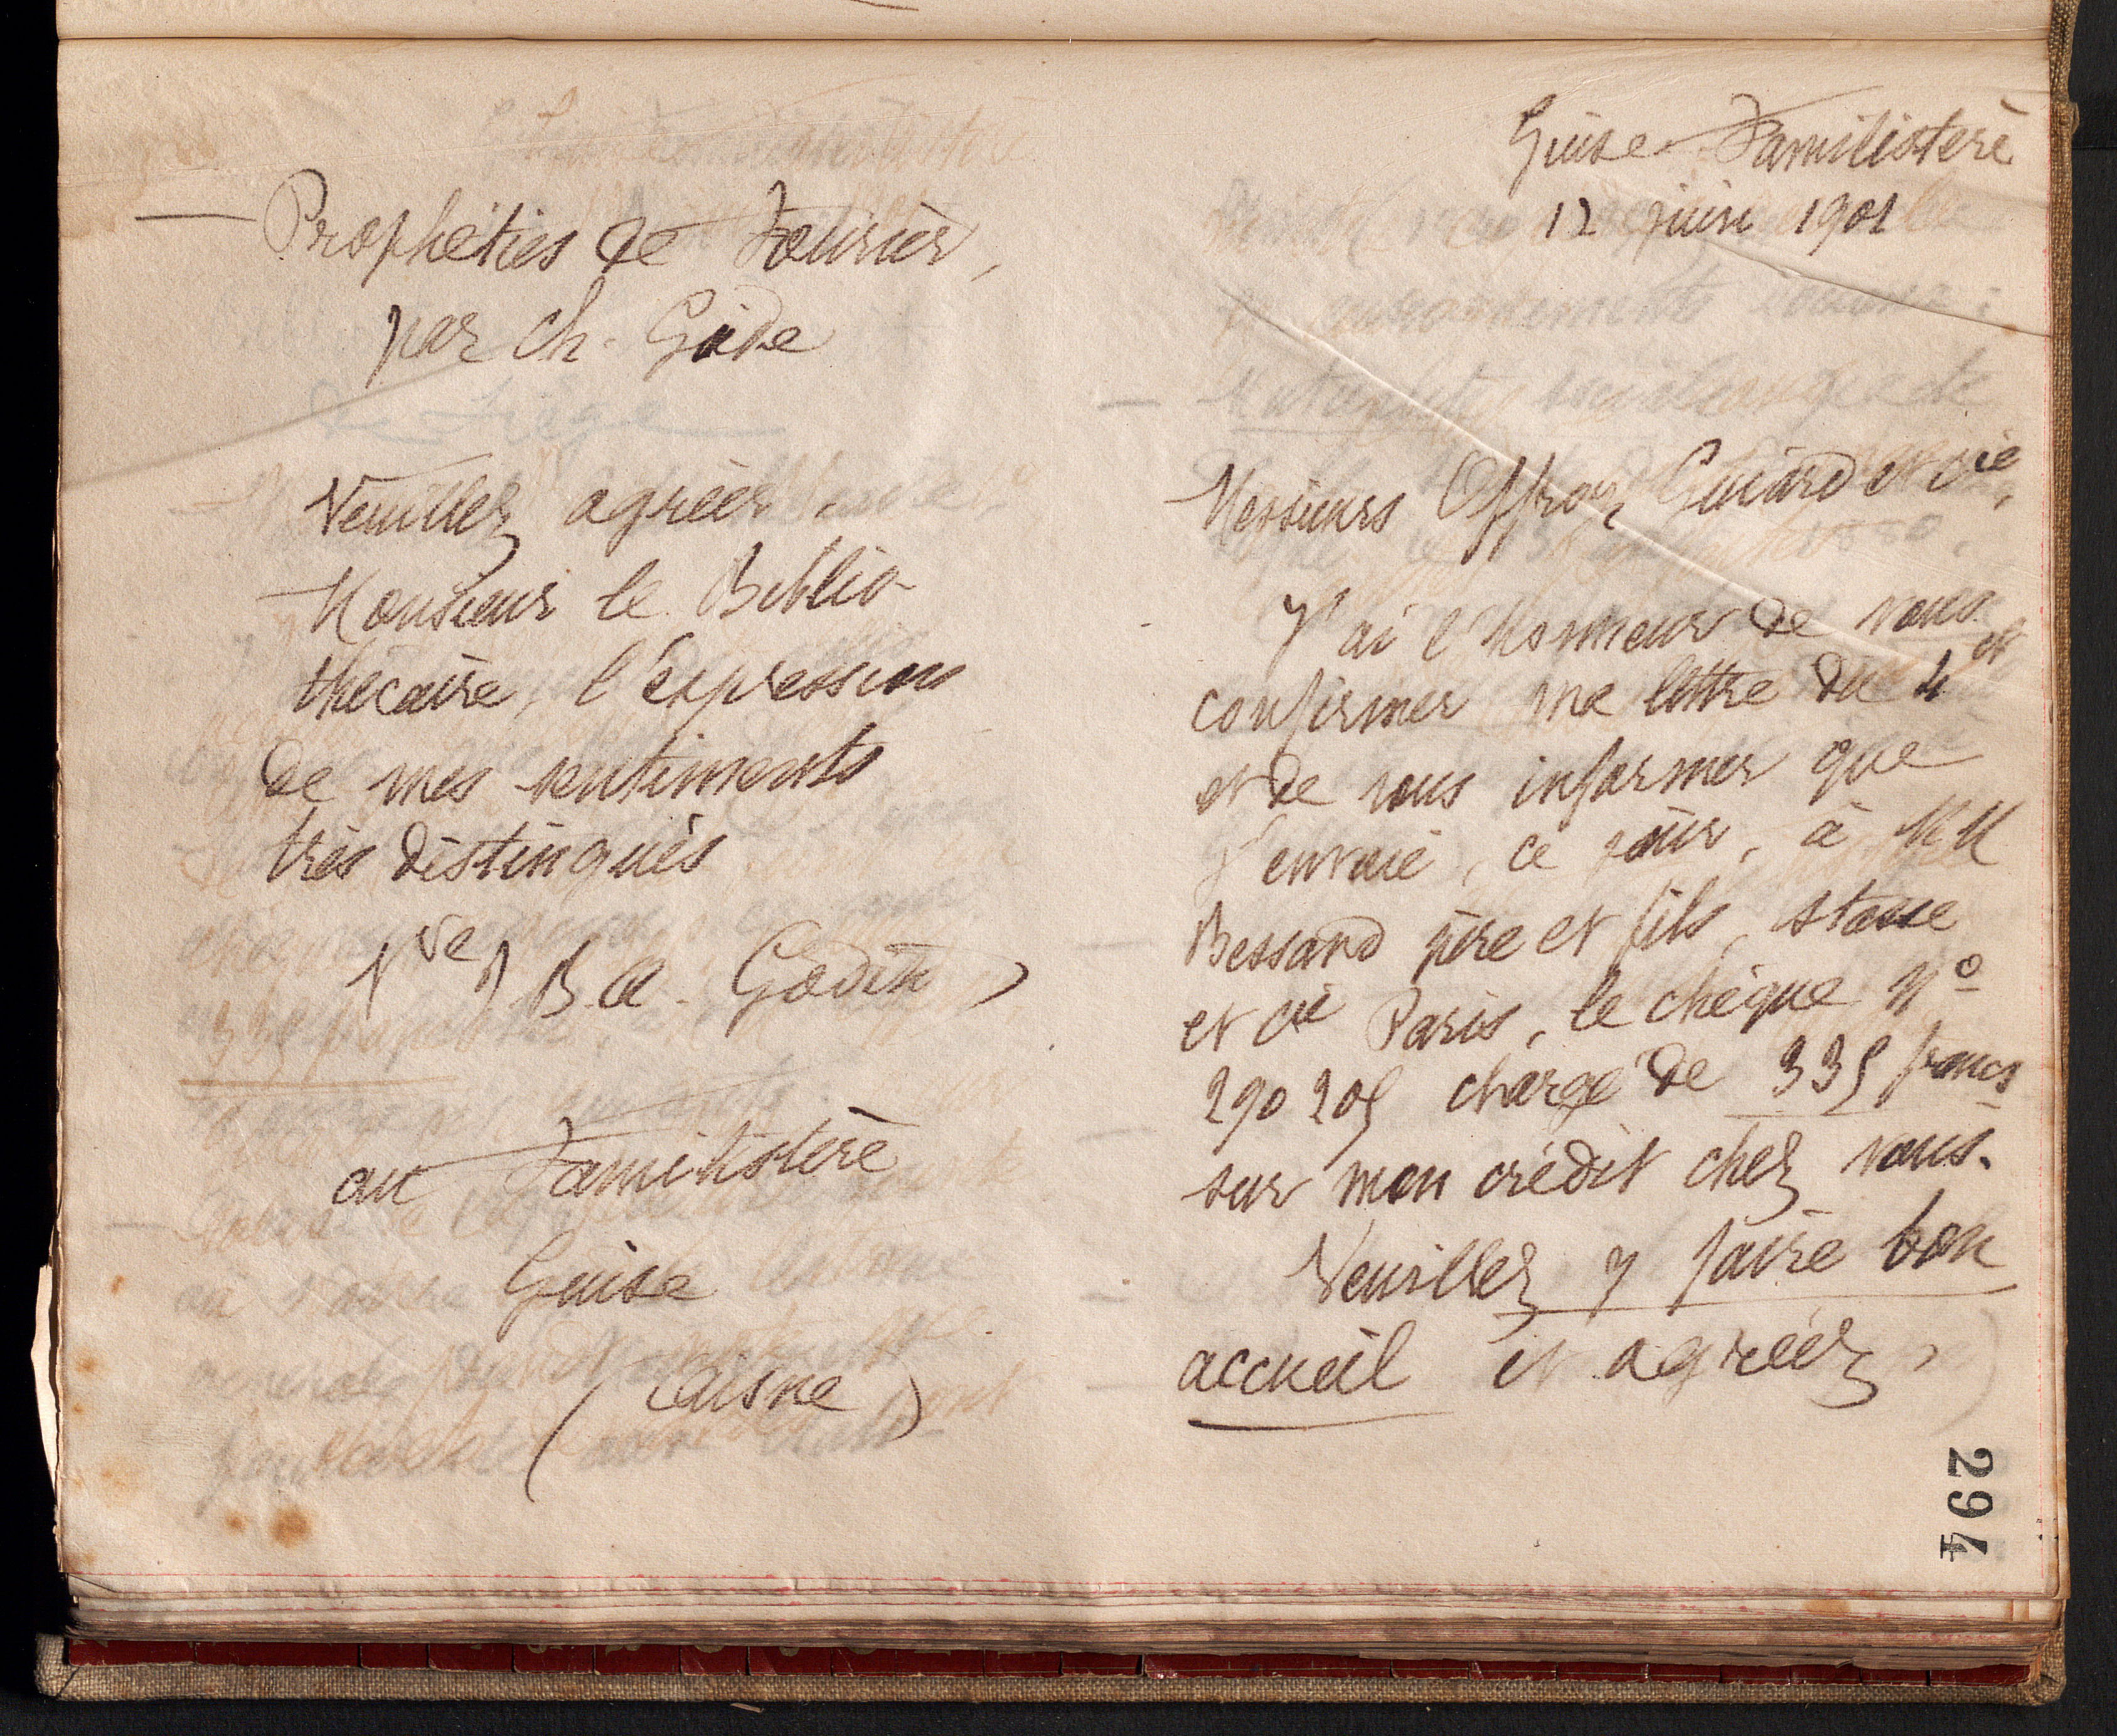 — Prophéties de Fourier,
par Ch. Gide
Veuillez agréer,
Monsieur le Biblio-
thécaire, l'expression
de mes sentiments
très distingués
Vve J. B. A. Godin
au Familistère
Guise
(Aisne)
Guise-Familistère
12 juin 1901
Messieurs Offroy, Guiard et Cie,
J'ai l'honneur de vous
confirmer ma lettre du 4 ct
et de vous informer que
j'envoie, ce jour, à MM
Bessand père et fils, Stasse
et Cie Paris, le chèque No
290205 chargé de 335 francs
sur mon crédit chez vous.
Veuillez y faire bon
accueil et agréer,
294